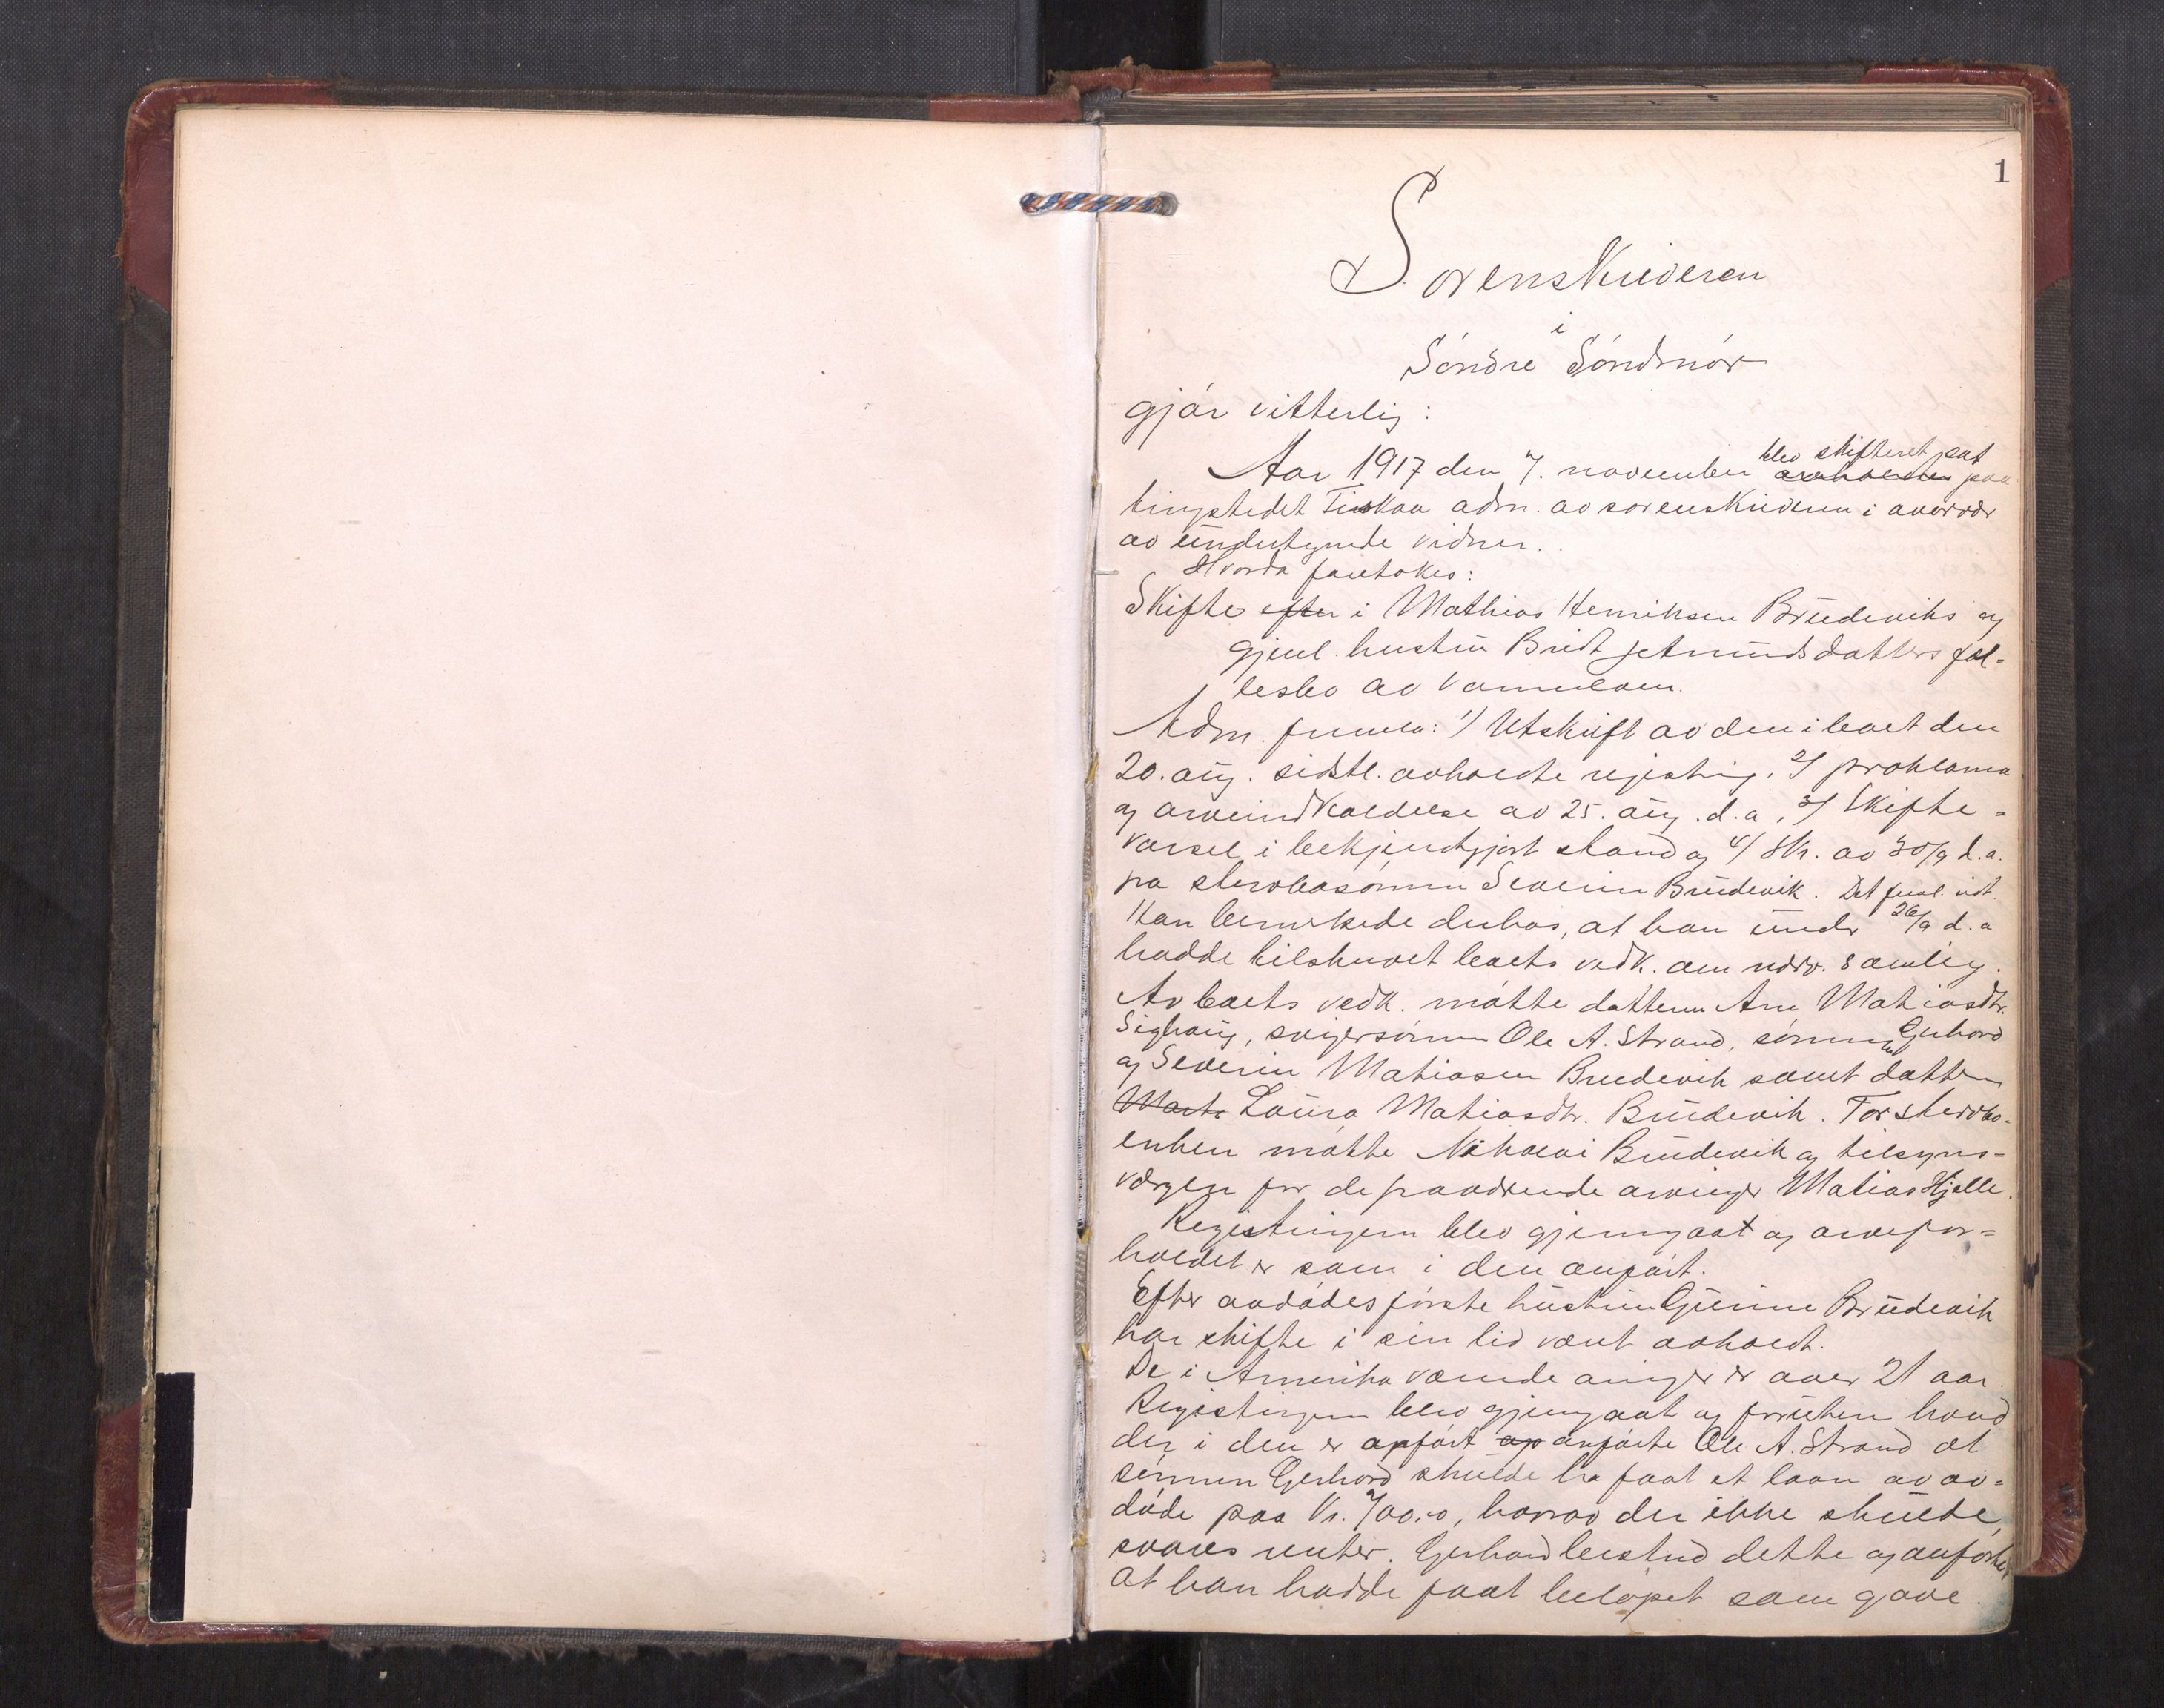 1
Sorenskriveren
i
Söndre Söndmör
gjör vitterlig:
Aar 1917 den 7. november blev skifteret sat paa
tingstedet Fiskaa adm. av sorenskriveren i overvær
av undertegnede vidner.
Hvorda foretokes:
Skifte efter i Mathias Henriksen Brudeviks og
gjenl. hustru Bridt Amundsdatters fæl-
lesbo av Vannelven.
Adm. fremla: 1/ Utskrift av den i boet den
20. aug. sidstl. avholdte registring, 2/ proklama
og arveindkaldelse av 25. aug. d.a, 3/ Skifte-
varsel i bekjendtgjort stand og 4/ Skr. av 30/9 d.a.
fra stervbosönnen Severin Brudevik. Det freml. vedt.
Han bemerkede derhos, at han under 26/9 d.a
hadde tilskrevet boets vedk. om nærv. samling.
Av boets vedk. mötte datteren Ane Matiasdtr.
Sighaug, svigersönnen Ole A. Strand, sönnerne Gerhard
og Severin Matiasen Brudevik samt datteren
Marta Laura Matiasdtr. Brudevik. For stervbo-
enken mötte Nikolai Brudevik og tilsyns-
vergen for de fraværende arvinger Matias Hjelle.
Registringen blev gjenngaat og arvefor-
holdet er som i den anfört.
Efter avdödes förste hustru Gurine Brudevik
har skifte i sin tid vært avholdt.
De i Amerika værende arvinger er over 21 aar.
Registringen blev gjengaat og foruten hvad
der i den er anfört ap anförte Ole A. Strand at
sönnen Gerhard skulde ha faat et laan av av-
döde paa Kr. 700.00, hvorav der ikke skulde
svares renter. Gerhard bestred dette og anförte,
at han hadde faat belöpet som gave.